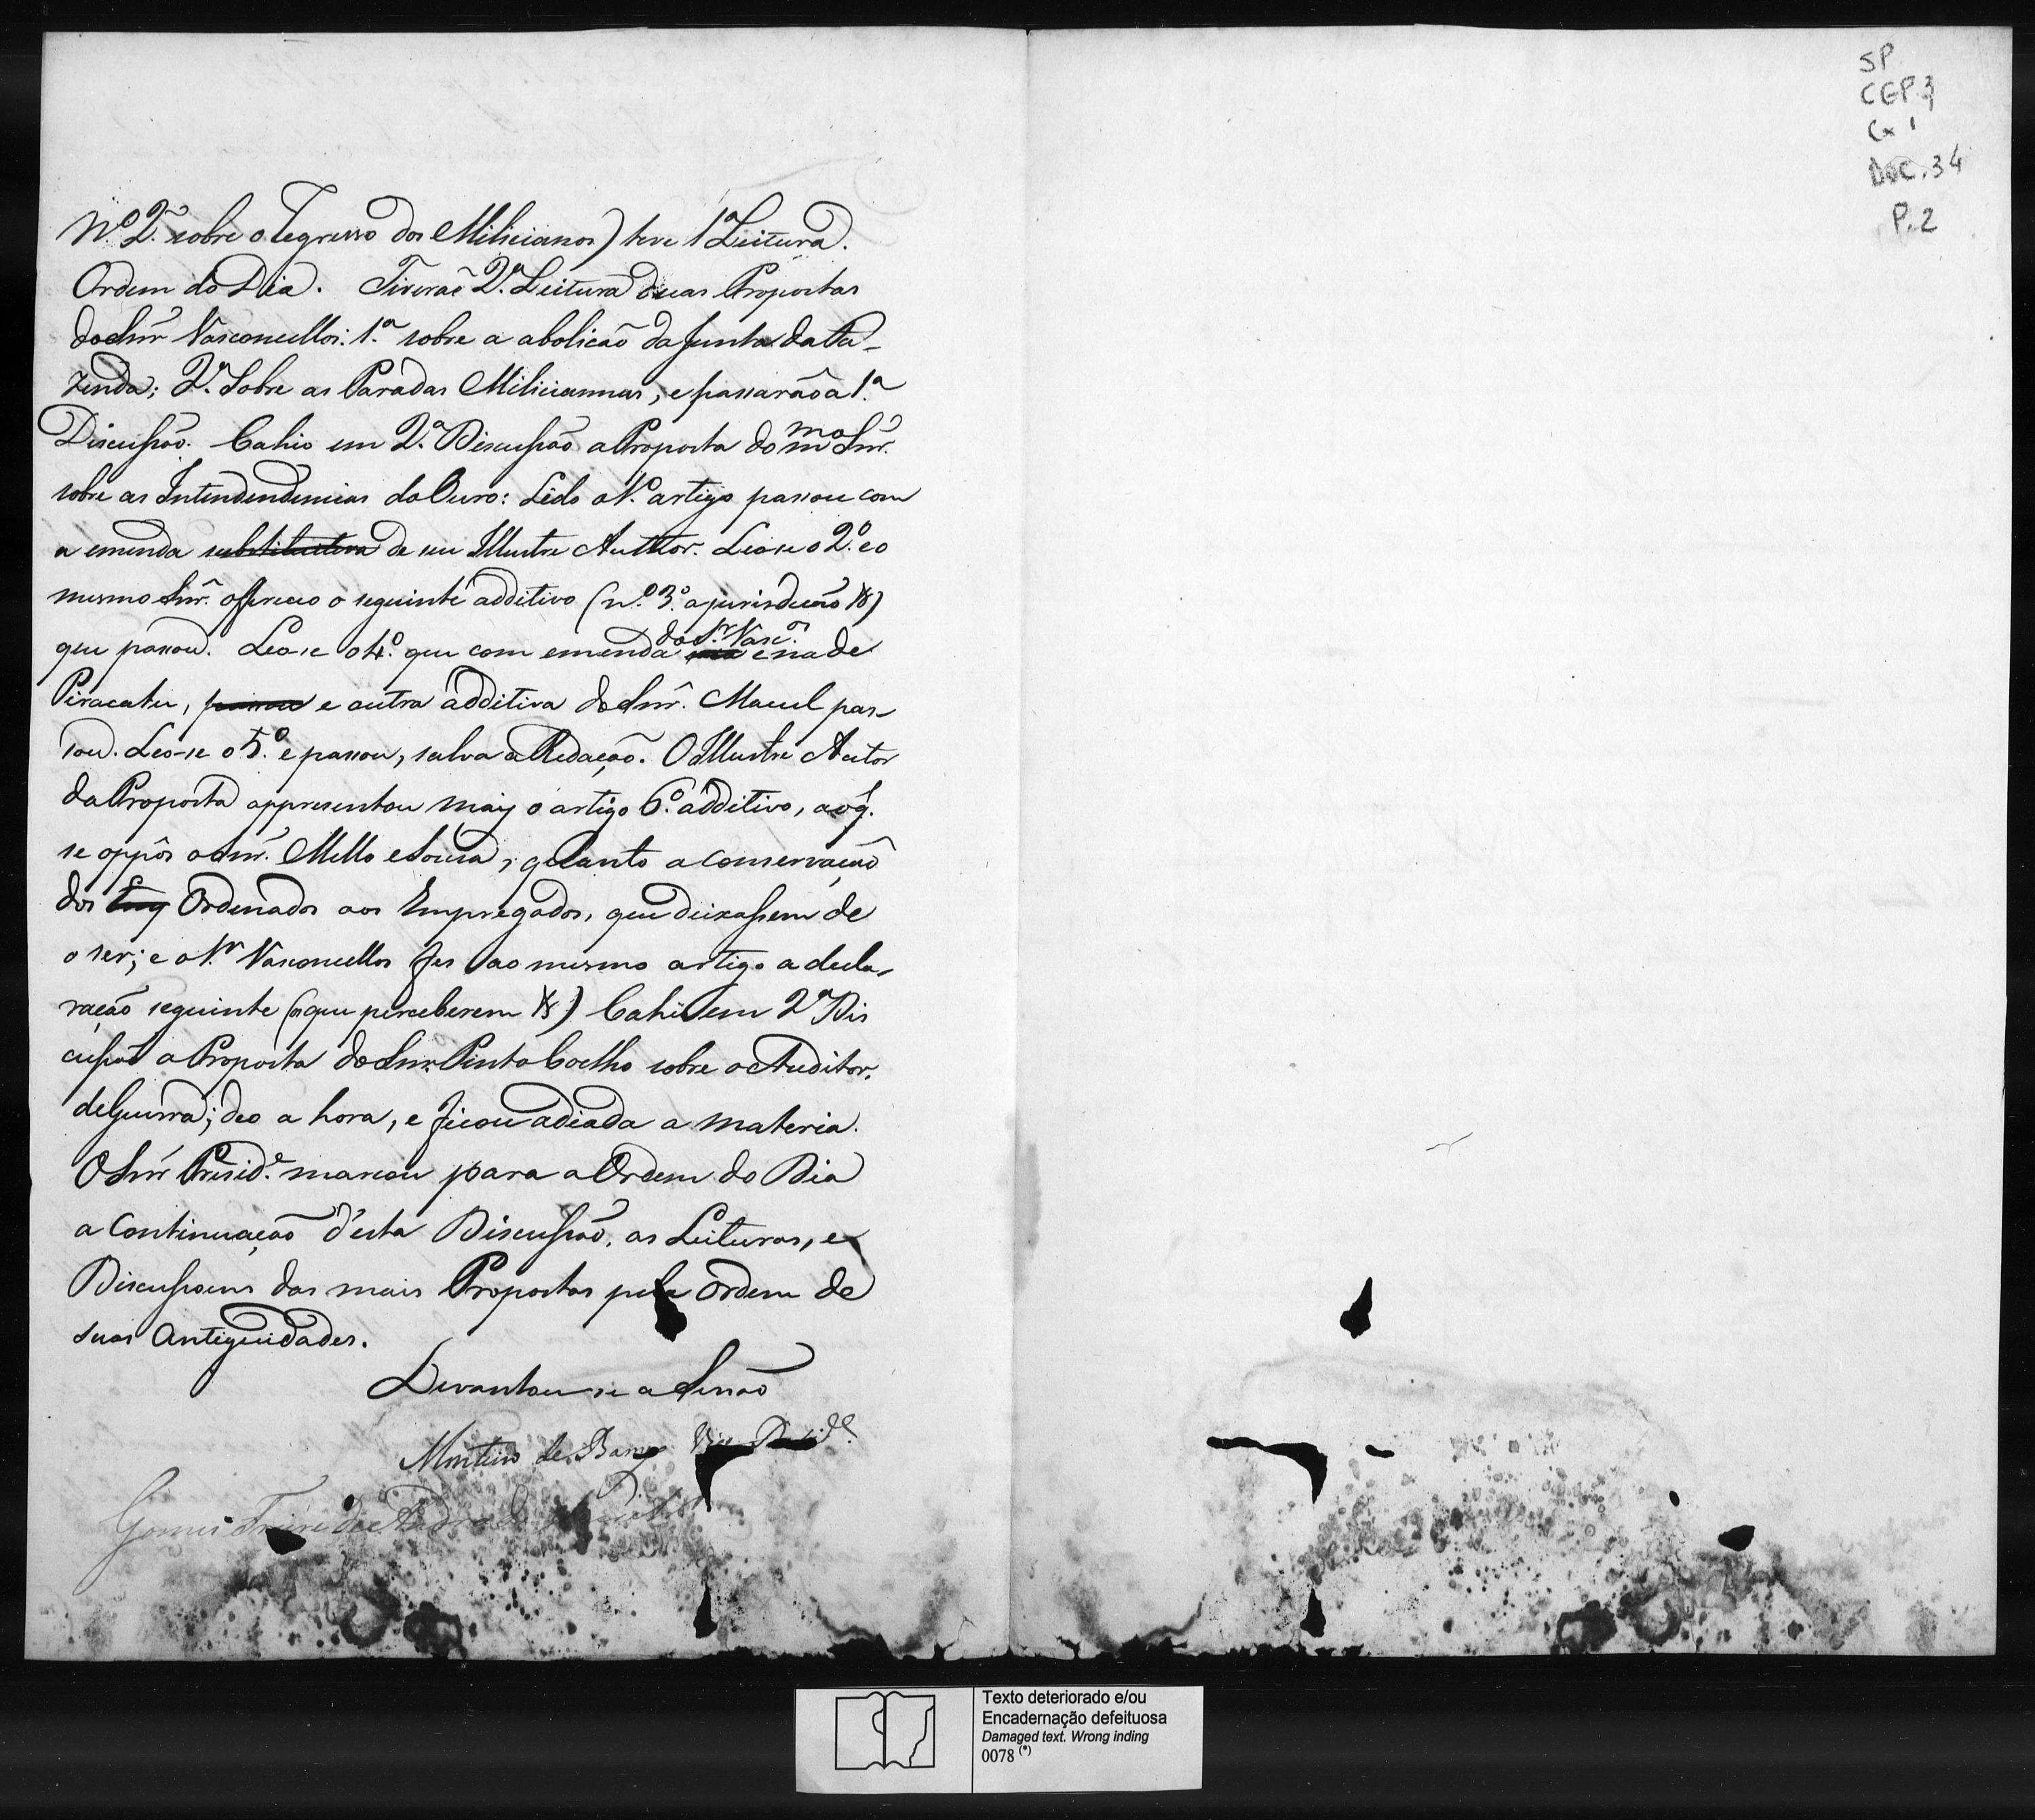 Nº 2º sobre o regresso dos Milicianos) teve 1ª Leitura.
Ordem do Dia. Tiverão 2ª Leitura duas Propostas
do Snr Vasconcellos: 1ª sobre a abolicão da Junta da Fa-
zenda; 2ª Sobre as Paradas Miliciannas, e passarão a 1ª
Discussão. Cahio em 2ª Discussão a Proposta do mmo Snr.
sobre as Intendendencias do Ouro: Lido o 1º artigo passou com
a emenda substitutiva de seu Illustre Author. Leo-se o 2º e o
mesmo Snr. offereceo o seguinte additivo (nº 3º a jurisdicção &)
que passou. Leo-se o 4º que com emenda do Sr. Vascos.
Piracatu, passou e outra additiva do Snr. Maciel pas-
sou. Leo-se o 5º e passou, salva a Redacção. O Illustre Autor
da Proposta appresentou mais o artigo 6º additivo, ao q.
se oppôs o Snr. Mello e Sousa, quanto a conservação
dos Emp Ordenados aos Empregados, que deixassem de
o ser; e o Sr. Vasconcellos fes ao mesmo artigo a decla-
ração seguinte (os que perceberem &) Cahio em 2ª Dis
cussão a Proposta do Snr. Pinto Coelho sobre o Auditor.
de Guerra; deo a hora, e ficou adiada a materia.
O Snr Preside. marcou para a Ordem do Dia
a continuação d'esta Discussão, as Leituras, e
Discussoens das mais Propostas pela ordem de
suas Antiguidades.
Levantou-se a Sessão
Monteiro de Barros Vice Preside.
Gomes Freire de Andrade
SP
CGP.3
Cx 1
Doc. 34
P. 2
Texto deteriorado e/ou
Encadernação defeituosa
Damaged text. Wrong inding
0078 (*)